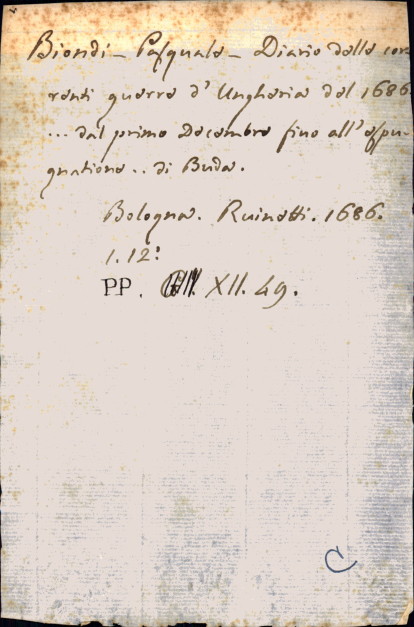 Biondi - Pasquale - Diario delle cor-
renti guerre d' Ungheria del 1686.
... dal primo Decembre fino all' espu-
gnatione .. di Buda.
Bologna. Ruinetti. 1686.
1. 12:
PP. XII. 49.
C